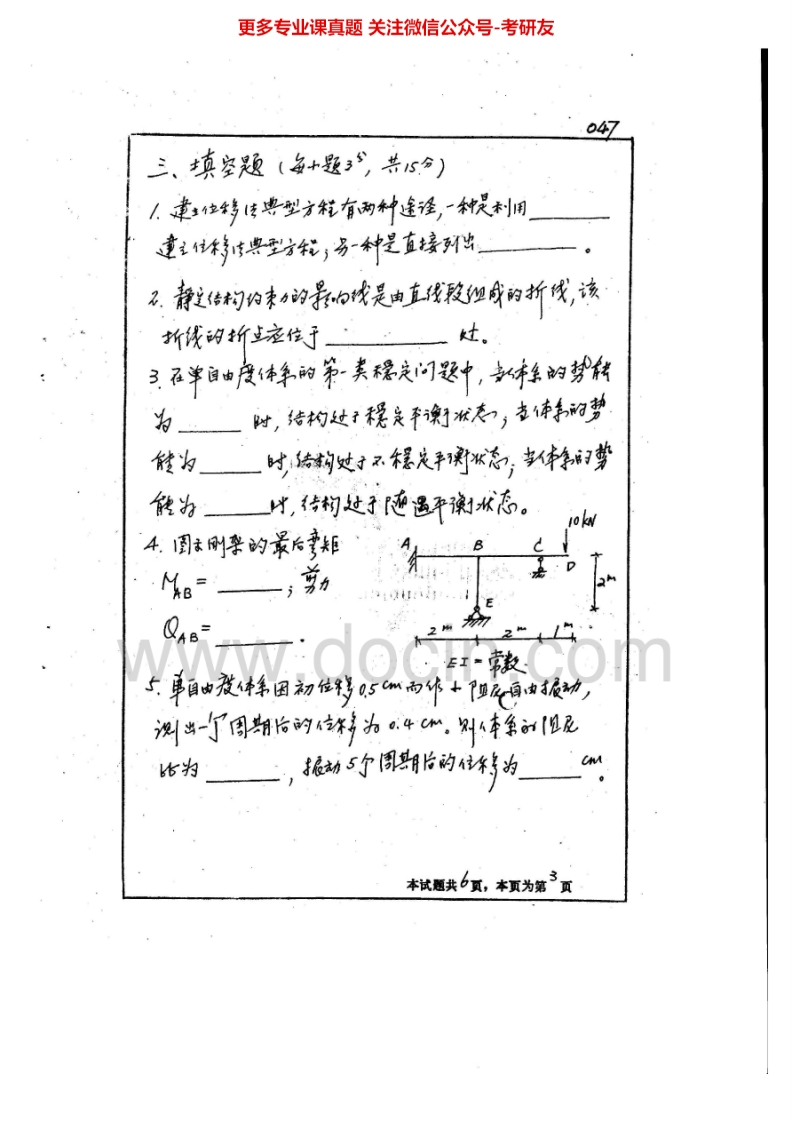 更多专业课真题 关注微信公众号-考研友
047
三、填空题（每小题3分，共15分）
1. 建立位移法典型方程有两种途径，一种是利用________
建立位移法典型方程；另一种是直接列出________。
2. 静定结构约束力的影响线是由直线段组成的折线，该
折线的折点应位于________处。
3. 在单自由度体系的第一类稳定问题中，当体系的势能
为______时，结构处于稳定平衡状态；当体系的势
能为______时，结构处于不稳定平衡状态；当体系的势
能为______时，结构处于随遇平衡状态。
4. 图示刚架的最后弯矩
M_AB = ______；剪力
Q_AB = ______.
10kN
A B C D
E
2m
2m 2m 1m
EI = 常数
www.docin.com
5. 单自由度体系因初位移0.5cm而作小阻尼自由振动，
测出一个周期后的位移为0.4cm。则体系的阻尼
比为______，振动5个周期后的位移为______cm。
本试题共6页，本页为第3页